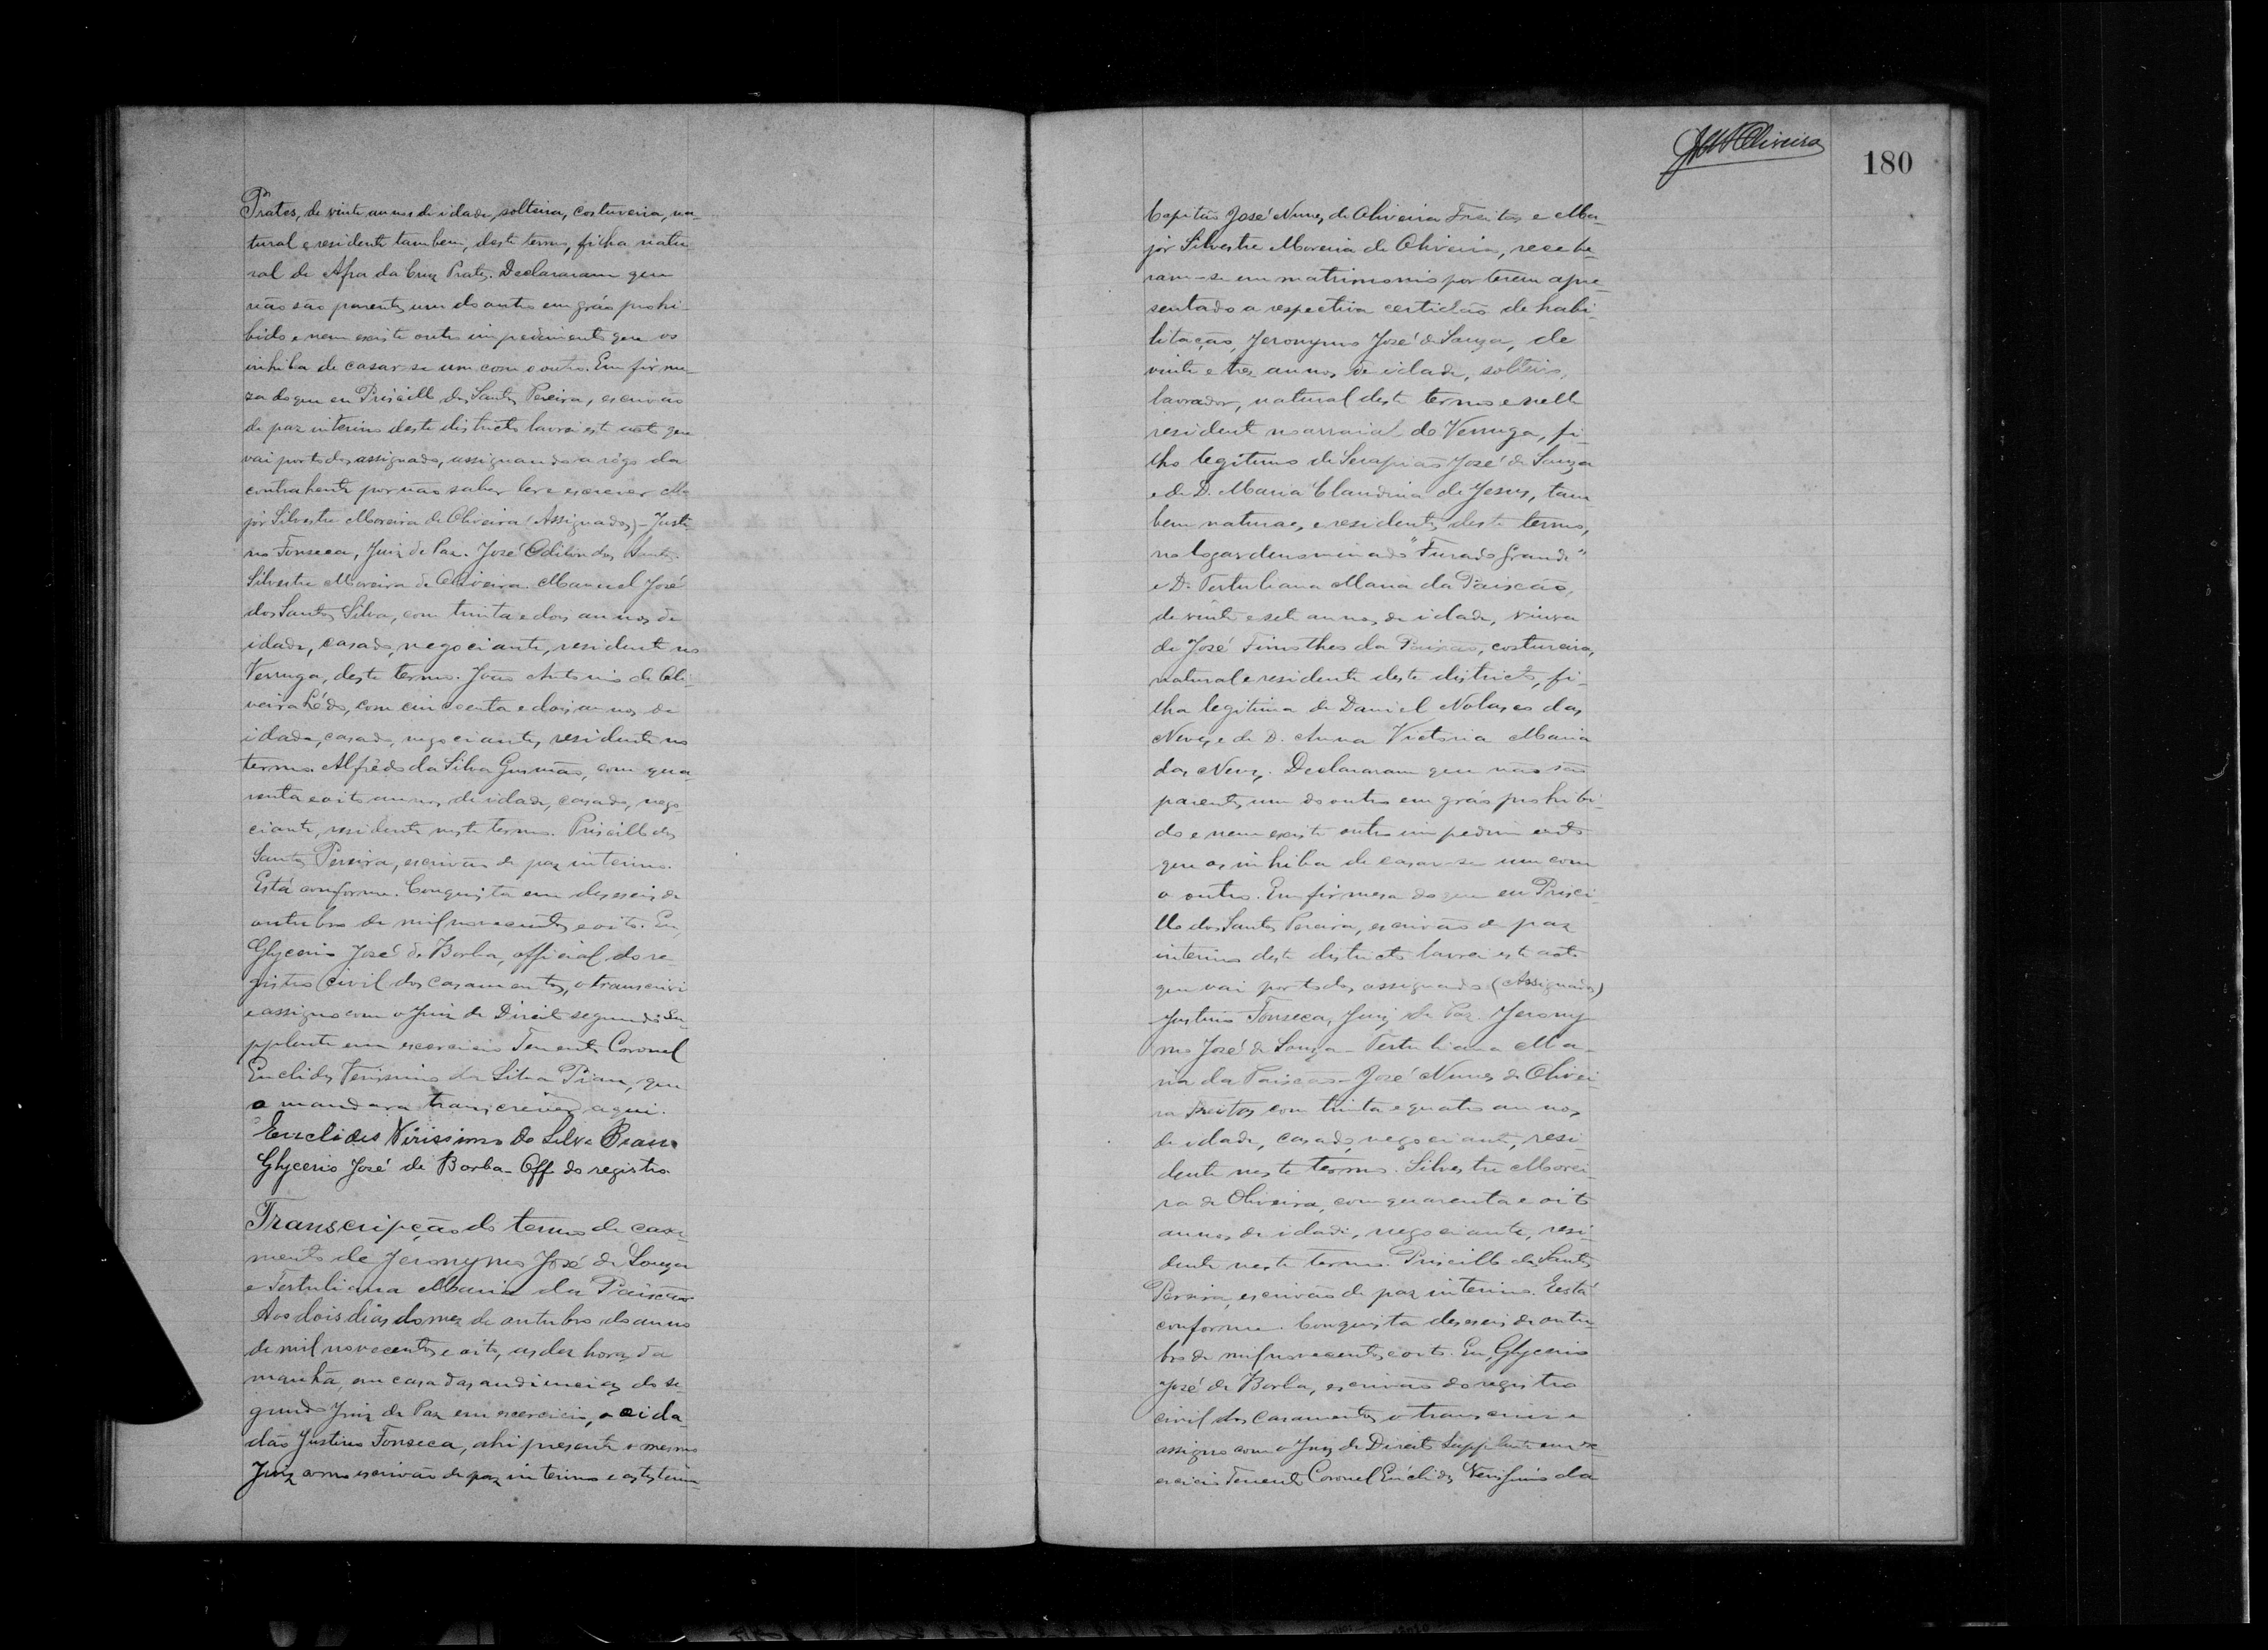 Prates, de vinte annos de idade, solteira, costureira, na-
tural e residente tambem, deste termo, filha natu
ral de Afra da Cruz Prates. Declararam que
não são parentes um do outro em gráo prohi-
bido e nem existe outro impedimento que os
inhiba de casar-se um com o outro. Em firme-
za do que eu Priscillo dos Santos Pereira, escrivão
de paz interino deste districto lavrei este acto que
vai por todos assignado, assignando a rôgo da
contrahente por não saber ler e escrever o Ma
jôr Silvestre Moreira de Oliveira (Assignados) - Justi
no Fonseca, Juiz de Paz. José Odilon dos Santos.
Silvestre Moreira de Oliveira. Manuel José
dos Santos Silva, com trinta e dois annos de
idade, casado, negociante, residente no
Verruga, deste termo. João Antonio de Oli-
veira Lédo, com cincoenta e dois annos de
idade, casado, negociante, residente no
termo. Alfrêdo da Silva Gusmão, com qua-
renta e oito annos de idade, casado, nego
ciante, residente neste termo. Priscillo dos
Santos Pereira, escrivão de paz interino.
Está conforme. Conquista em deseseis de
outubro de mil novecentos e oito. Eu,
Glycerio José de Borba, official do re-
gistro civil dos casamentos, o transcrivi
e assigno com o Juiz de Direito segundo Su-
pplente em exercicio Tenente Coronel
Euclides Verissimo da Silva Pian, que
o mandara transcrever aqui.
Euclides Virissimo da Silva Pian
Glycerio José de Borba - Off. do registro
Transcripção do termo de casa-
mento de Jeronymo José de Souza
e Tertuliana Maria da Paixão
Aos dois dias do mez de outubro do anno
de mil novecentos e oito, as dez horas da
manhã, em casa das audiencias do se-
gundo Juiz de Paz em exercicio, o cida-
dão Justino Fonseca, ahi presente o mesmo
Juiz como escrivão de paz interino e as testem-
JM Oliveira
180
Capitão José Nunes de Oliveira Freitas e Ma-
jôr Silvestre Moreira de Oliveira, recebe-
ram-se em matrimonio por terem apre-
sentado a respectiva certidão de habi-
litação, Jeronymo José de Souza, de
vinte e tres annos de idade, solteiro,
lavrador, natural deste termo e nelle
residente no arraial do Verruga, fi-
lho legitimo de Serapião José de Souza
e de D. Maria Claudina de Jesus, tam
bem naturaes e residentes deste termo,
no logar denominado "Furado Grande"
e D. Tertuliana Maria da Paixão,
de vinte e sete annos de idade, viuva
de José Timotheo da Paixão, costureira,
natural e residente deste districto, fi-
lha legitima de Daniel Nolasco das
Neves e de D. Anna Victoria Maria
das Neves. Declararam que não são
parentes um do outro em gráo prohibi-
do e nem existe outro impedimento
que os inhiba de casar-se um com
o outro. Em firmesa do que eu Prisci-
llo dos Santos Pereira, escrivão de paz
interino deste districto lavrei este acto
que vai por todos assignado (Assignados)
Justino Fonseca, Juiz de Paz. Jerony-
mo José de Souza - Tertuliana Ma-
ria da Paixão - José Nunes de Olivei-
ra Freitas com trinta e quatro annos
de idade, casado, negociante, resi-
dente neste termo. Silvestre Morei-
ra de Oliveira, com quarenta e oito
annos de idade, negociante, resi-
dente neste termo. Priscillo dos Santos
Pereira, escrivão de paz interino. Está
conforme. Conquista deseseis de outu-
bro de mil novecentos e oito. Eu, Glycerio
José de Borba, escrivão do registro
civil dos casamentos o transcrivi e
assigno com o Juiz de Direito Supplente em ex
ercicio Tenente Coronel Euclides Verissimo da